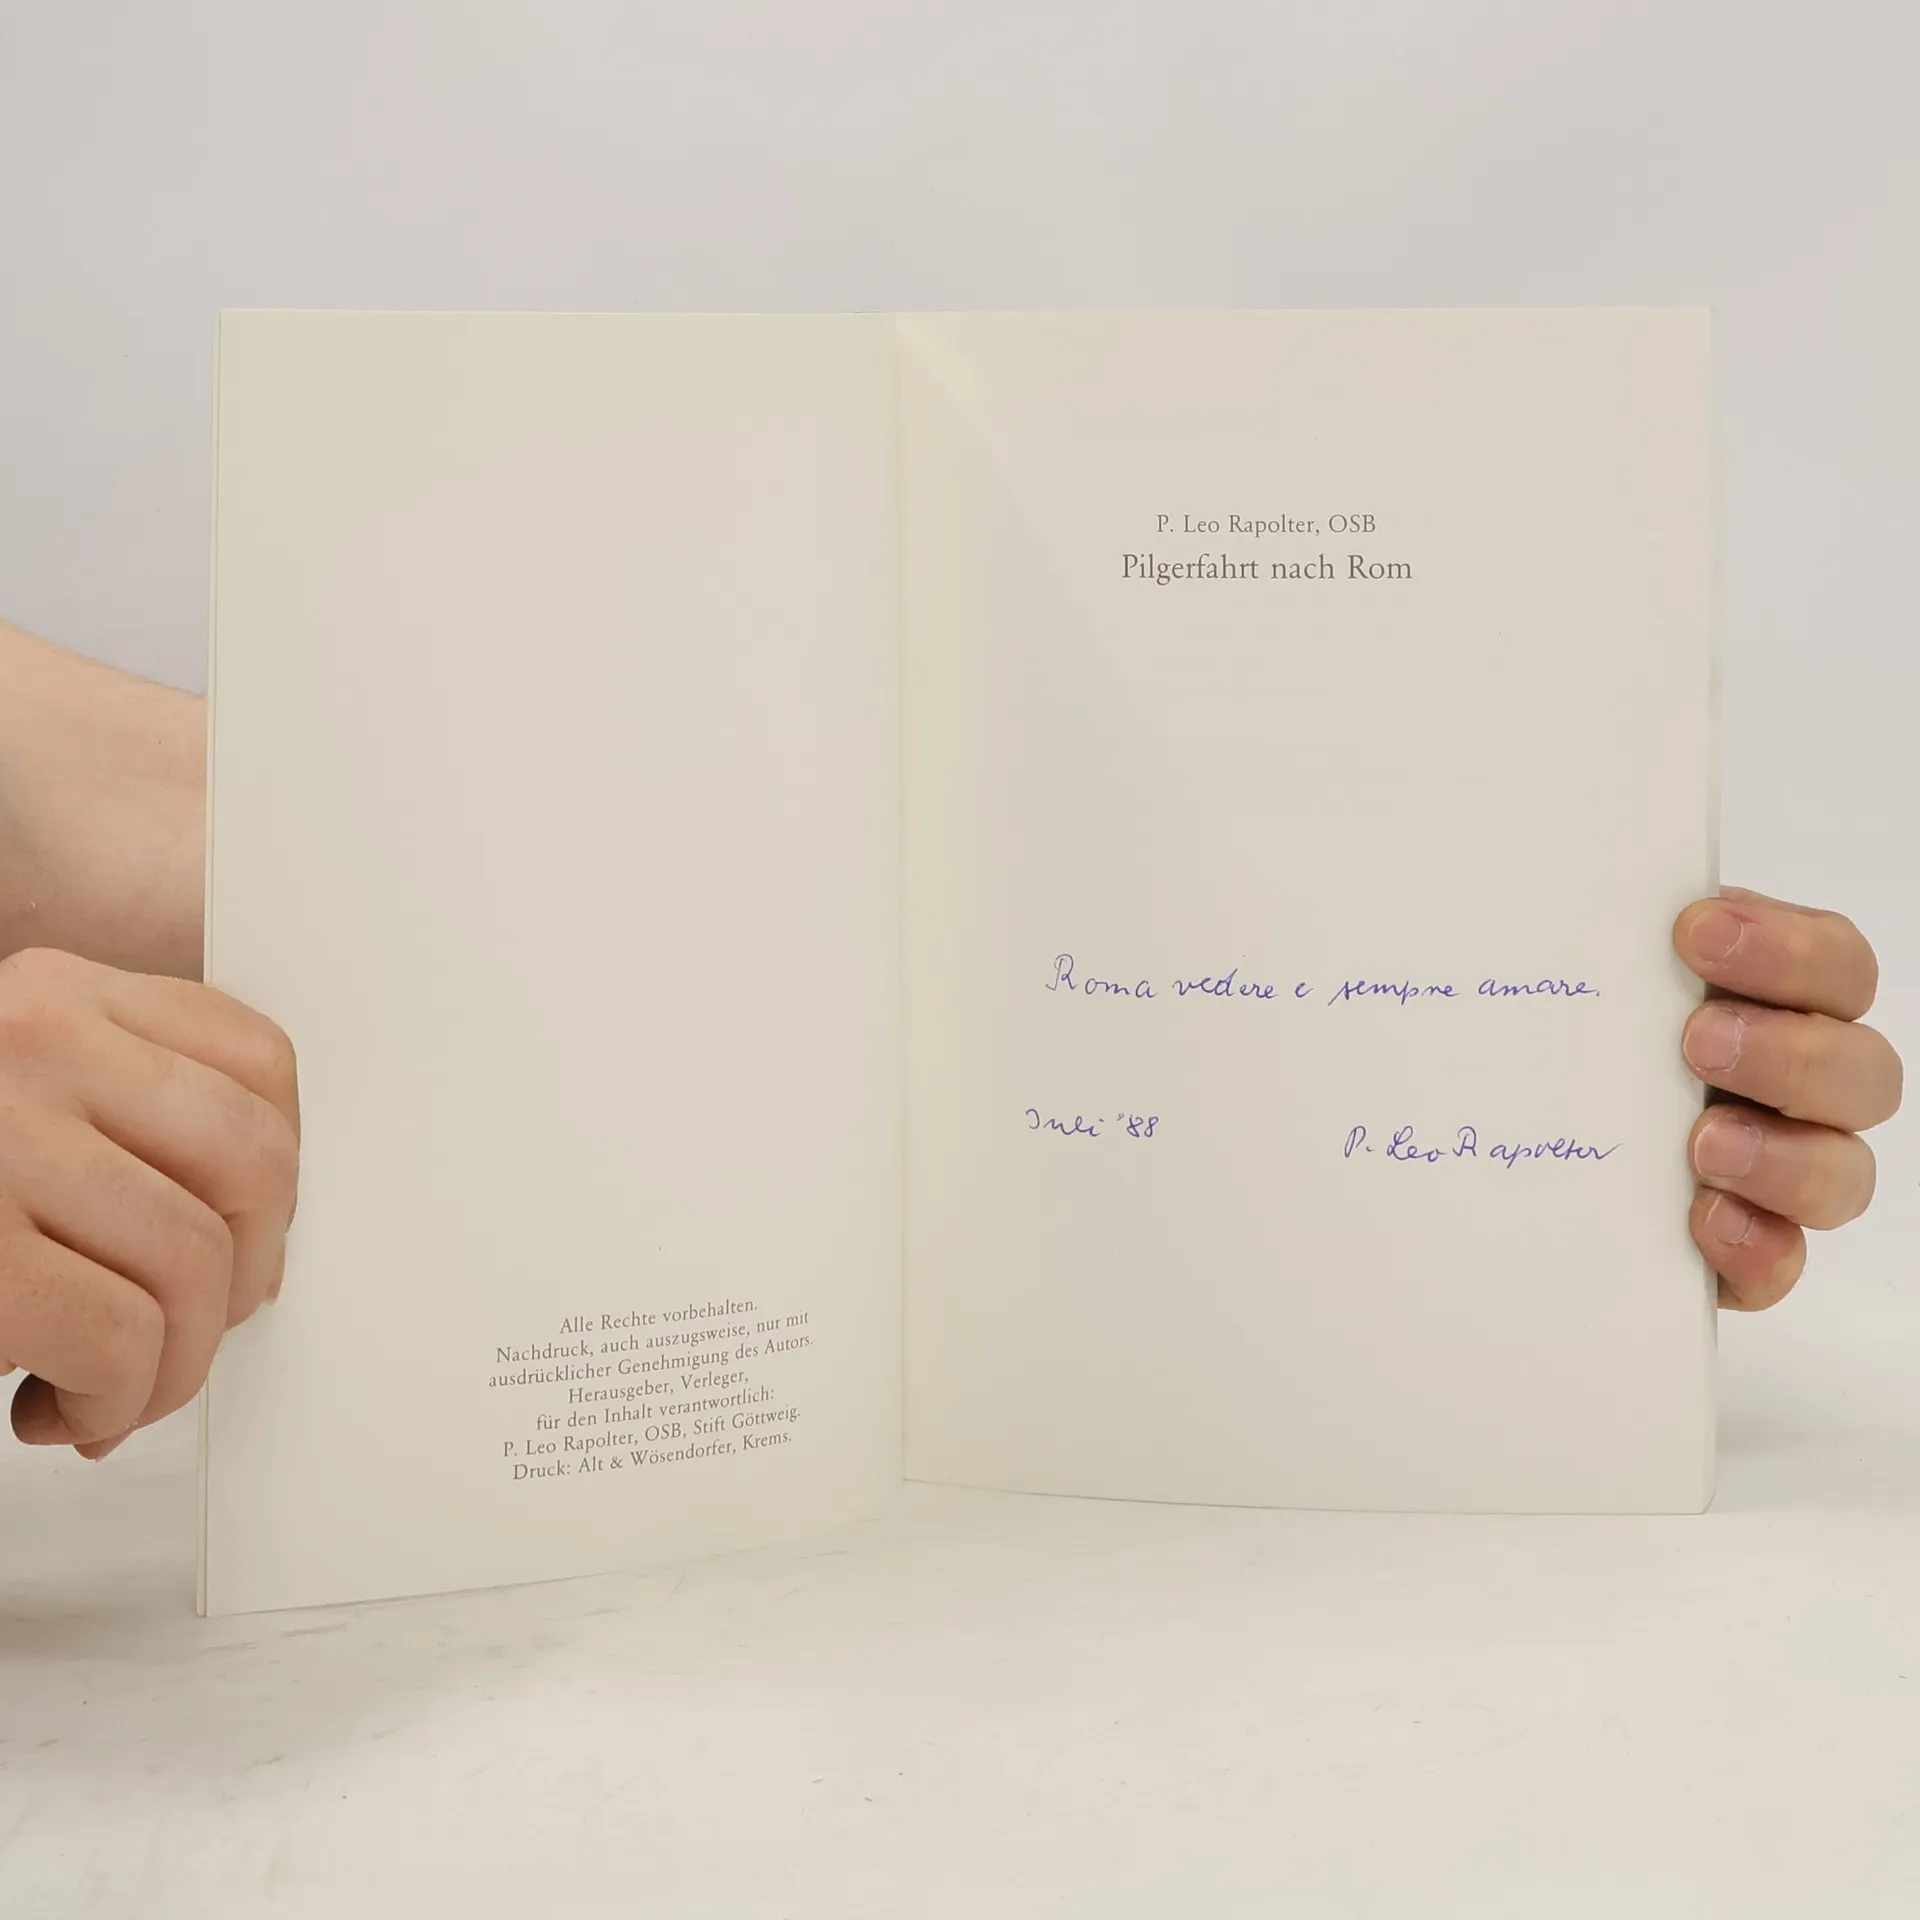 Alle Rechte vorbehalten.
Nachdruck, auch auszugsweise, nur mit
ausdrücklicher Genehmigung des Autors.
Herausgeber, Verleger,
für den Inhalt verantwortlich:
P. Leo Rapolter, OSB, Stift Göttweig.
Druck: Alt & Wösendorfer, Krems.
P. Leo Rapolter, OSB
Pilgerfahrt nach Rom
Roma vedere e sempre amare.
Juli '88
P. Leo Rapolter